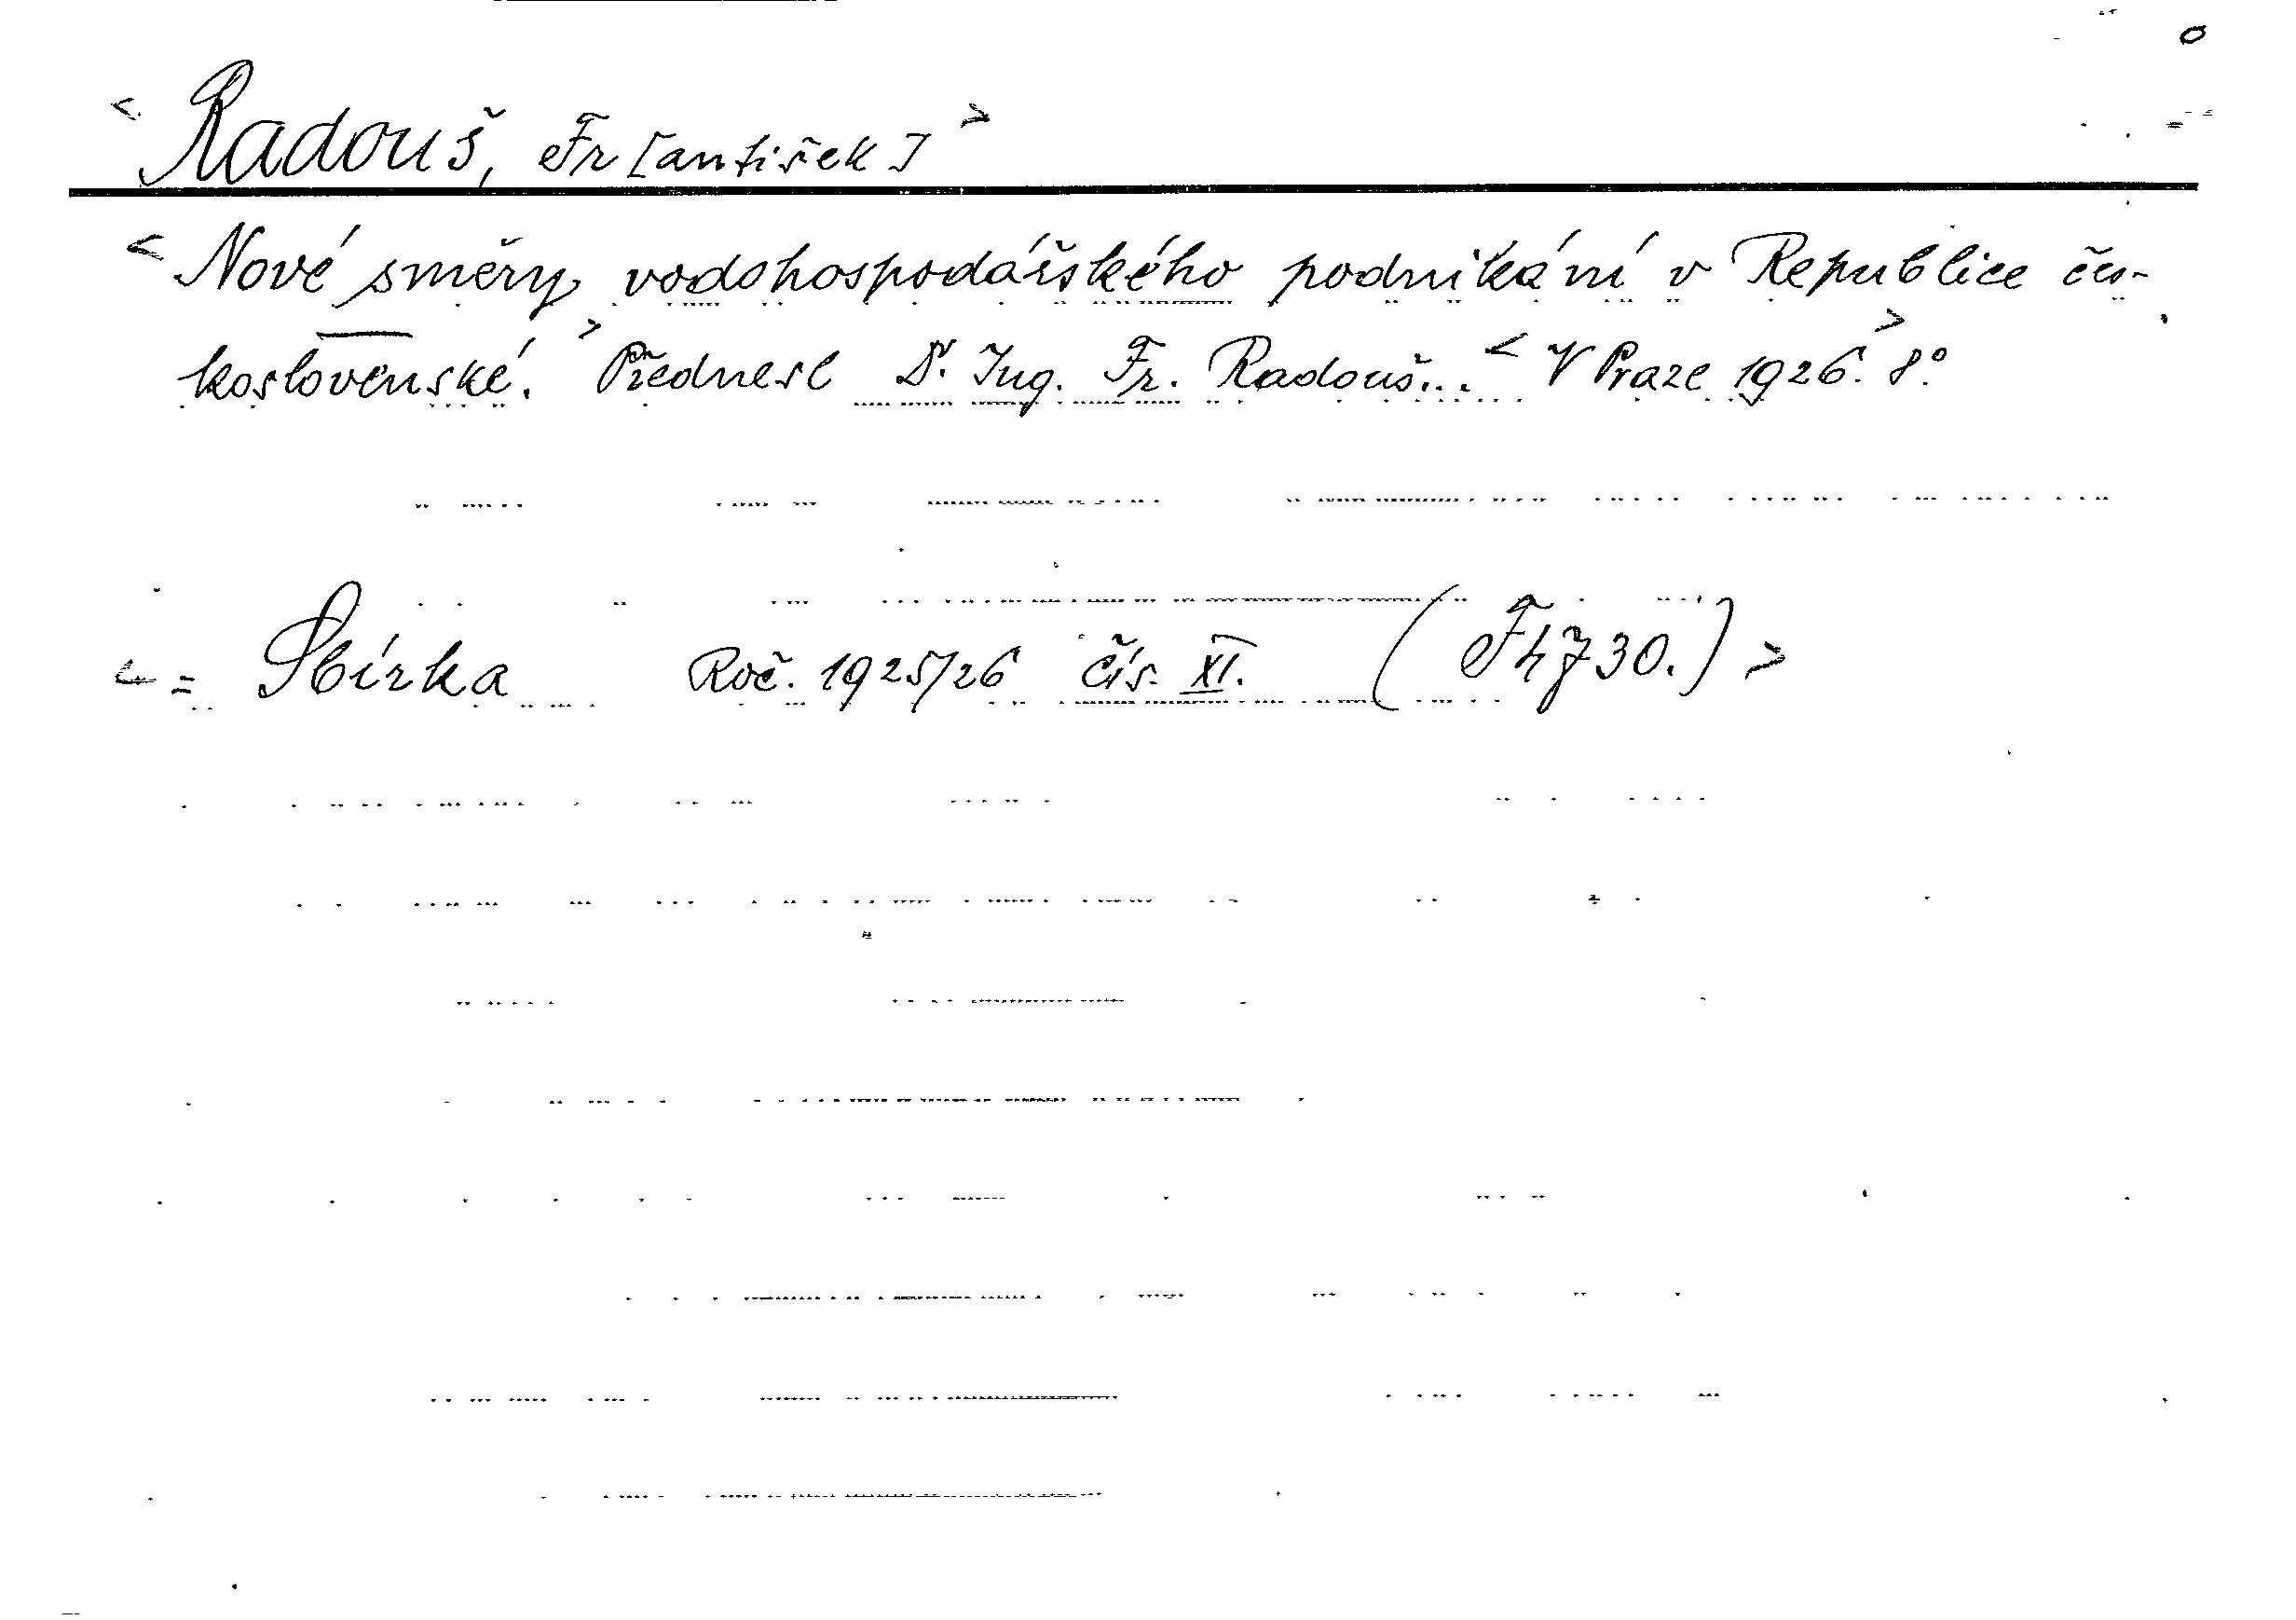 < Radouš, Fr[antišek] >
< Nové směry vodohospodářského podnikání v Republice čes-
koslovenské. > Přednesl Dr. Ing. Fr. Radouš... < V Praze 1926. > 8°.
< = Sbírka Roč. 1925/26 čís. XI. (F h 730.) >